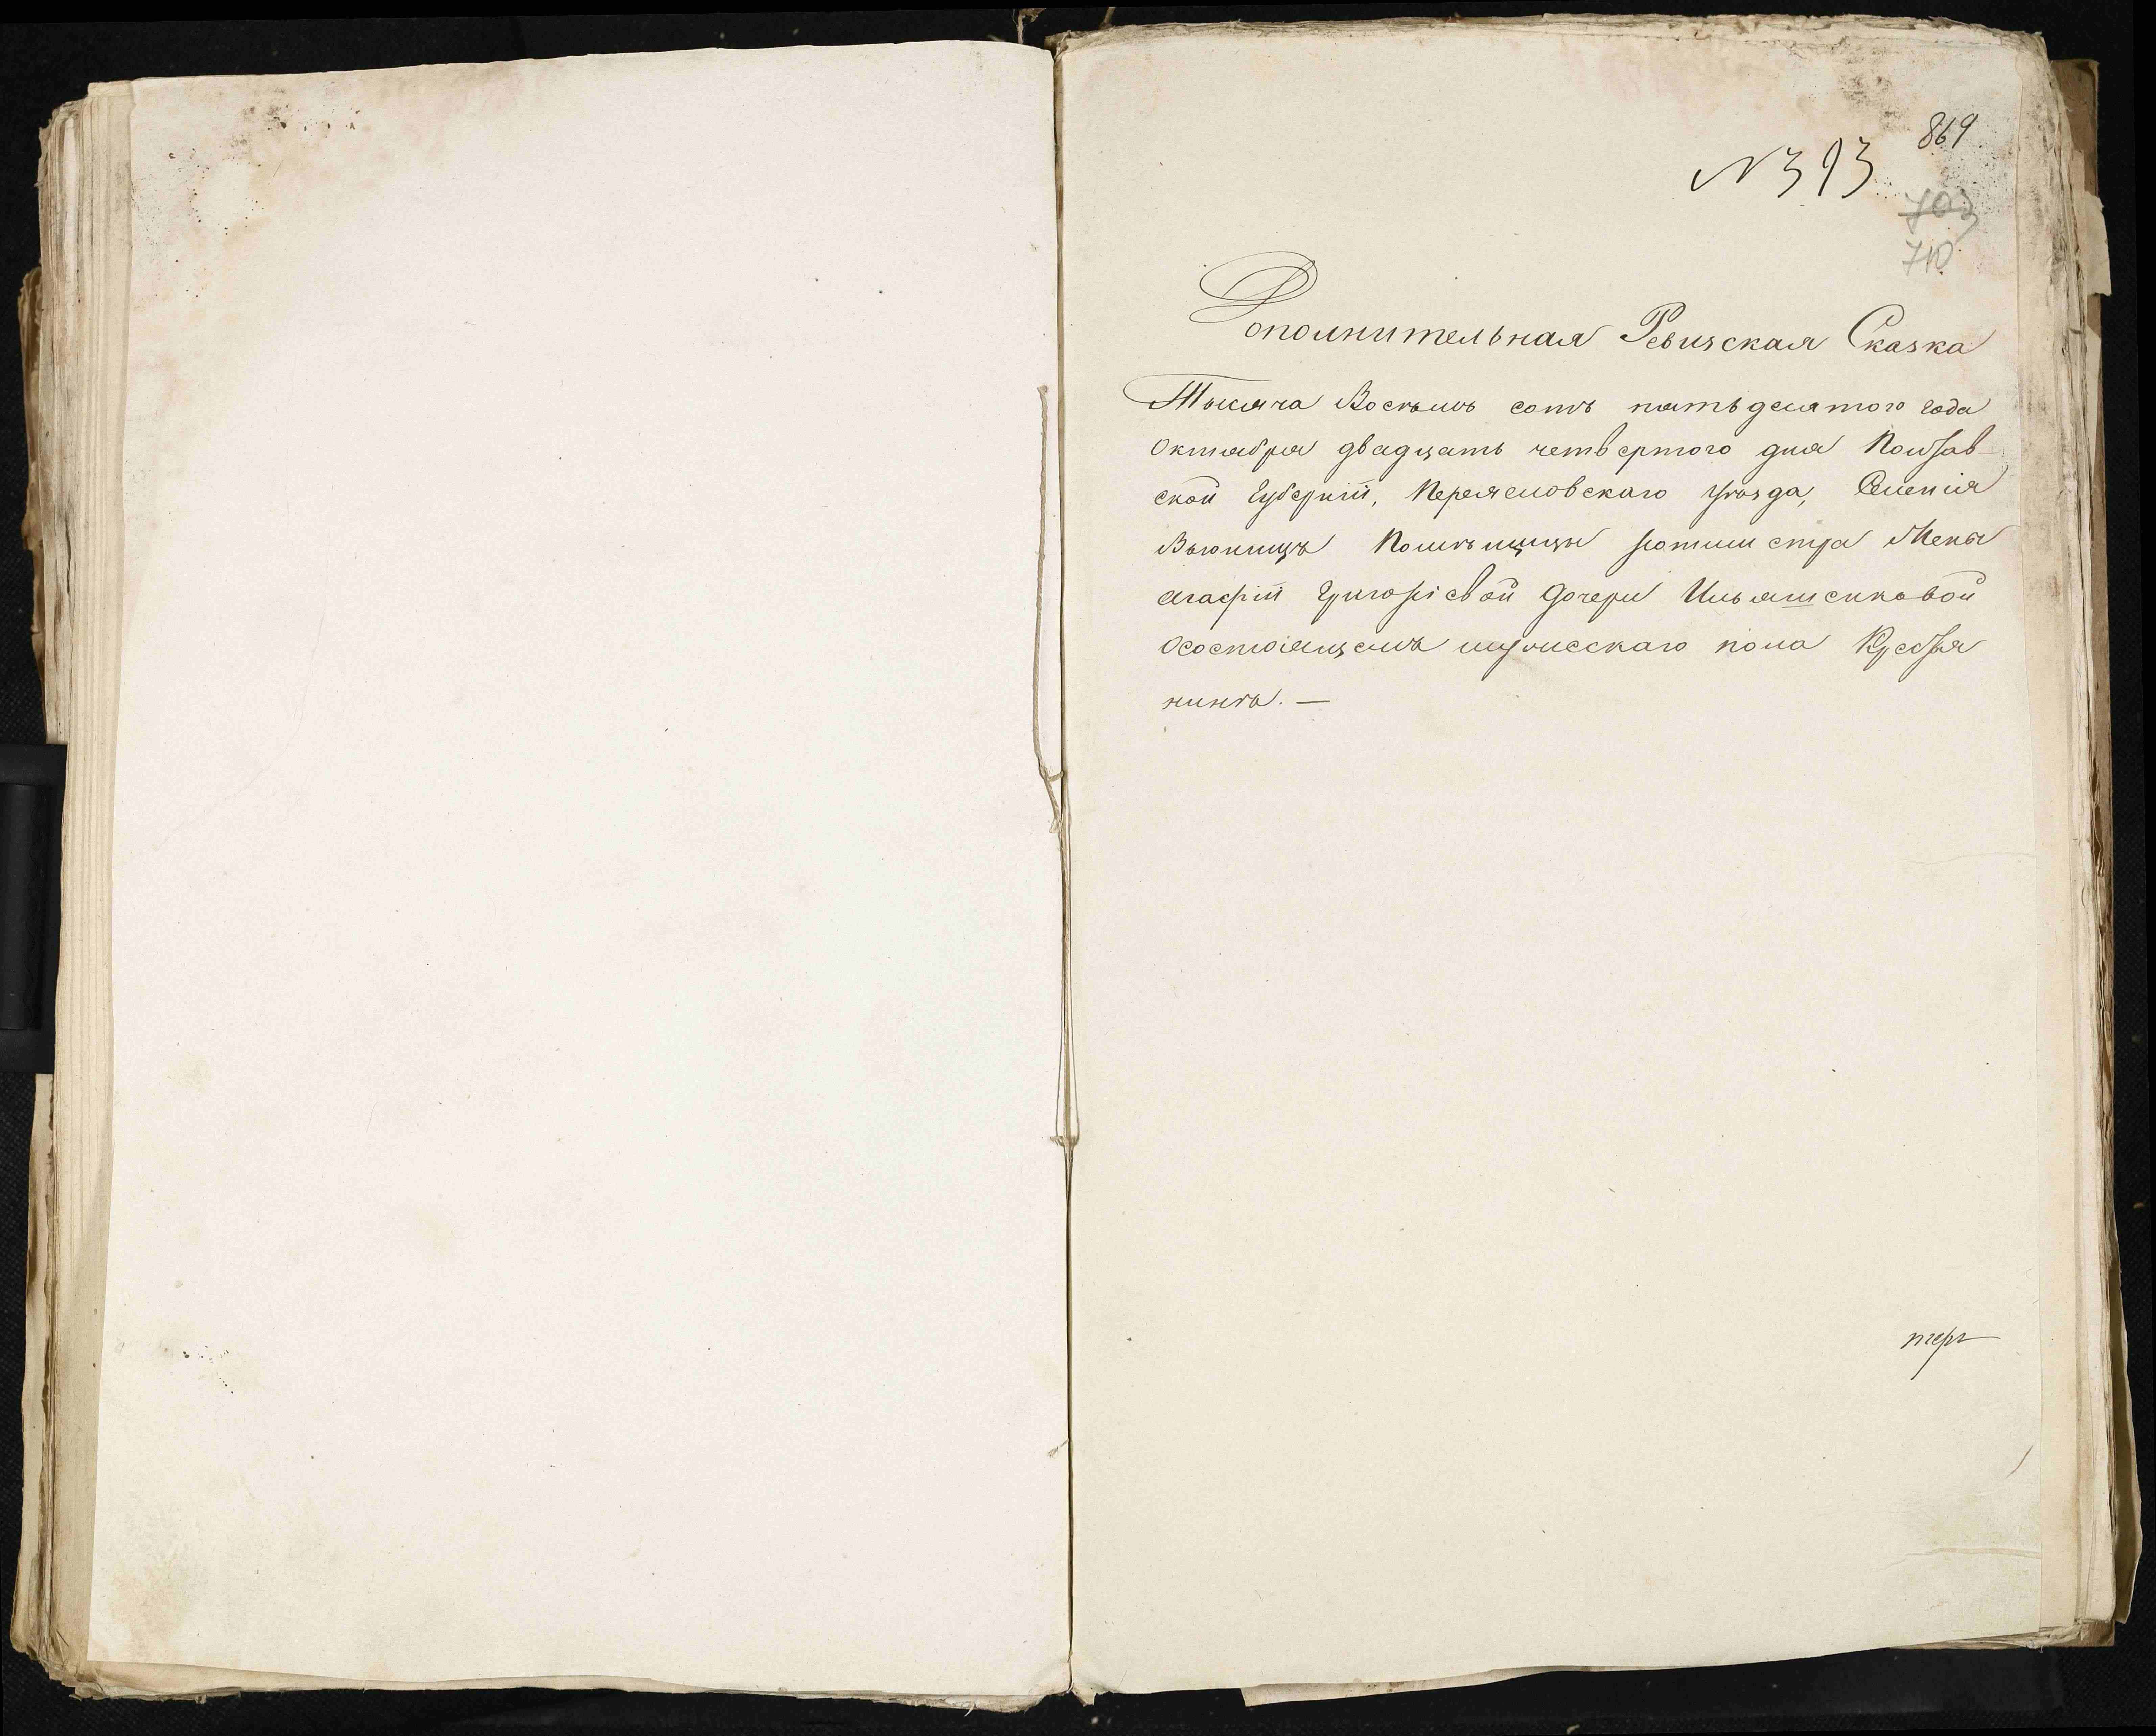 869
N 393
703
710
Дополнительная Ревизская Сказка
Тысяча Восѣмъ сотъ пятьдесятого года
Октября двадцать четвертого дня Полтав
ской Губерніи, Переясловскаго уѣзда, Селенія
Вьюнищъ Помѣщицы ротмистра Жены
Агафіи Григорієвой дочери Ильяшенковой
Осостоящемъ мужескаго пола Крестья
нинѣ. —